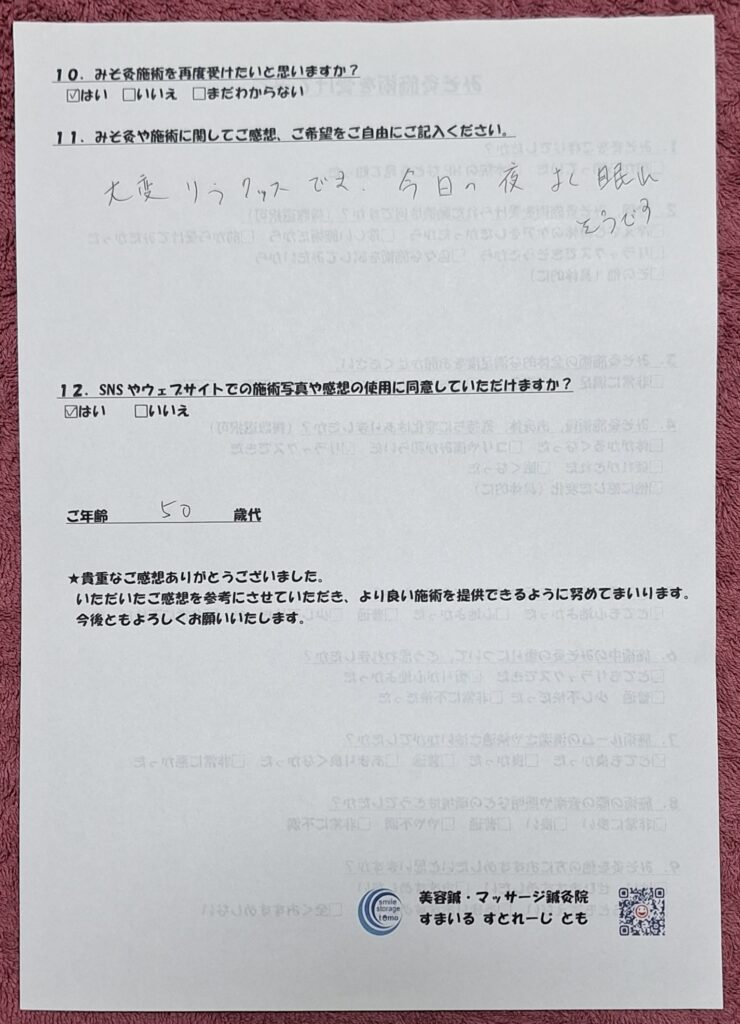 10. みそ灸施術を再度受けたいと思いますか?
☑はい □いいえ □まだわからない
11. みそ灸や施術に関してご感想、ご希望をご自由にご記入ください。
大変リラックスでき、今日の夜よく眠れ
そうです
12. SNSやウェブサイトでの施術写真や感想の使用に同意していただけますか?
☑はい □いいえ
ご年齢 50 歳代
★貴重なご感想ありがとうございました。
いただいたご感想を参考にさせていただき、より良い施術を提供できるように努めてまいります。
今後ともよろしくお願いいたします。
smile
storage
tomo
美容鍼・マッサージ鍼灸院
すまいる すとれーじ とも